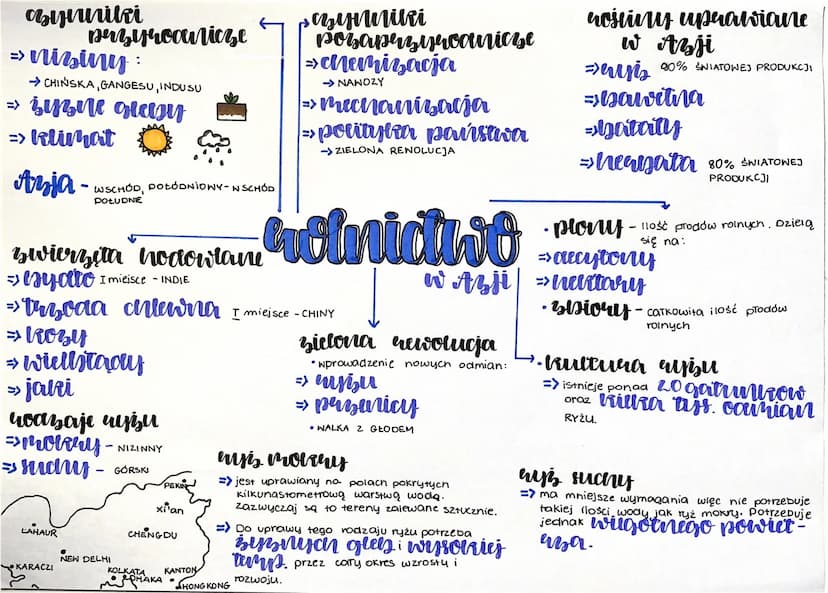 czynniki
przyrodnicze
=> niziny :
→ CHIŃSKA, GANGESU, INDUSU
=> żyzne gleby
=> klimat
Azja - WSCHÓD, POŁÓDNIOWY-WSCHÓD
POŁUDNIE
czynniki
pozaprzyrodnicze
=> chemizacja
→ NAWOZY
=> mechanizacja
=> polityka państwa
→ ZIELONA RENOLUCJA
rośliny uprawiane
w Azji
=> ryż 90% ŚWIATOWEJ PRODUKCJI
=> bawełna
=> bataty
=> herbata 80% ŚWIATOWEJ
PRODUKCJI
rolnictwo
w Azji
zwierzęta hodowlane
=> bydło I miejsce - INDIE
=> trzoda chlewna I miejsce - CHINY
=> kozy
=> wielbłądy
=> jaki
zielona rewolucja
• wprowadzenie nowych odmian:
=> ryżu
=> pszenicy
• WALKA Z GŁODEM
• plony - ilość płodów rolnych. Dzielą
się na:
=> decytony
=> hektary
• zbiory - całkowita ilość płodów
rolnych
• kultura ryżu
=> istnieje ponad 20 gatunków
oraz kilka tys. odmian
RYŻU.
rodzaje ryżu
=> mokry - NIZINNY
=> suchy - GÓRSKI
PEKIN
xi'an
LAHAUR
CHENGDU
NEW DELHI
KARACZI
KOLKATA
DHAKA
KANTON
HONGKONG
ryż mokry
=> jest uprawiany na polach pokrytych
kilkunastometrową warstwą wodą.
zazwyczaj są to tereny zalewane sztucznie.
=> Do uprawy tego rodzaju ryżu potrzeba
żyznych gleb i wysokiej
temp. przez cały okres wzrostu i
rozwoju.
ryż suchy
=> ma mniejsze wymagania więc nie potrzebuje
takiej ilości wody jak ryż mokry. Potrzebuje
jednak wilgotnego powiet-
rza.